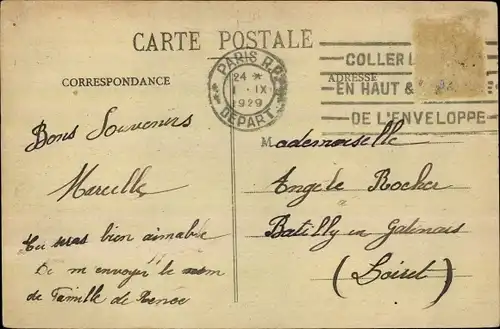 CARTE POSTALE
CORRESPONDANCE
ADRESSE
PARIS R.P.
24 *
1 · IX
1929
DEPART
COLLER
EN HAUT &
DE L'ENVELOPPE
Bons Souvenirs
Marcelle
Tu seras bien aimable
De m envoyer le nom
de Famille de Renée
Mademoiselle
Angèle Rocher
Batilly en Gatinais
(Loiret)